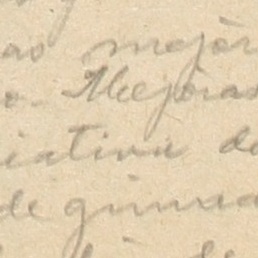 as mejor
o. Mejoras
iativa de
de gimna